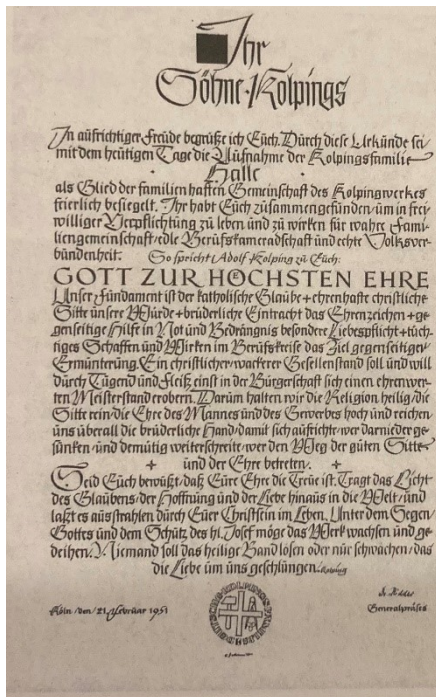 Ihr
Söhne Kolpings
In aufrichtiger Freude begrüße ich Euch. Durch diese Urkunde sei
mit dem heutigen Tage die Aufnahme der Kolpingsfamilie
Halle
als Glied der familienhaften Gemeinschaft des Kolpingwerkes
feierlich besiegelt. Ihr habt Euch zusammengefunden, um in frei-
williger Verpflichtung zu leben und zu wirken für wahre Fami-
liengemeinschaft, edle Berufskameradschaft und echte Volksver-
bundenheit. So spricht Adolf Kolping zu Euch:
GOTT ZUR HÖCHSTEN EHRE
Unser Fundament ist der katholische Glaube + ehrenhafte christliche
Sitte unsere Würde + brüderliche Eintracht das Ehrenzeichen + ge-
genseitige Hilfe in Not und Bedrängnis besondere Liebespflicht + tüch-
tiges Schaffen und Wirken im Berufskreise das Ziel gegenseitiger
Ermunterung. Ein christlicher, wackerer Gesellenstand soll und will
durch Tugend und Fleiß einst in der Bürgerschaft sich einen ehrenwer-
ten Meisterstand erobern. Darum halten wir die Religion heilig, die
Sitte rein, die Ehre des Mannes und des Gewerbes hoch und reichen
uns überall die brüderliche Hand, damit sich aufrichte, wer darnieder ge-
sunken und demütig weiterschreite, wer den Weg der guten Sitte
+ und der Ehre betreten. +
Seid Euch bewußt, daß Eure Ehre die Treue ist. Tragt das Licht
des Glaubens, der Hoffnung und der Liebe hinaus in die Welt, und
laßt es ausstrahlen durch Euer Christsein im Leben. Unter dem Segen
Gottes und dem Schutz des hl. Josef möge das Werk wachsen und ge-
deihen. Niemand soll das heilige Band lösen oder nur schwächen, das
die Liebe um uns geschlungen. Kolping
Köln, den, 21. Februar 1951
Generalpräses